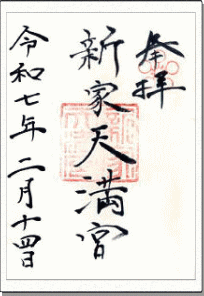 奉拝
新家天満宮
令和七年二月十四日